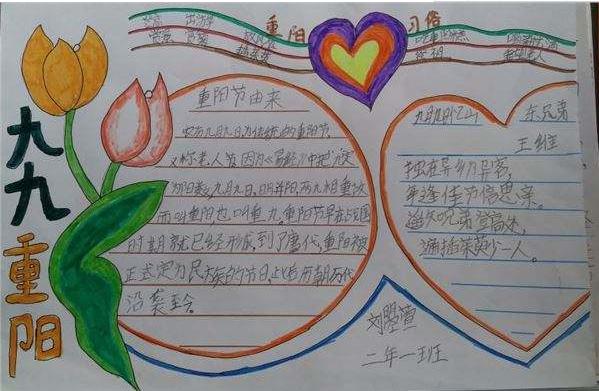 重阳 习俗
赏菊
九九重阳
重阳节由来
农历九月九日,为传统的重阳节
又称老人节,因为《易经》中把六定
为阳数,九月九日,日月并阳,两九相重,故
而叫重阳,也叫重九,重阳节早在战国
时期就已经形成,到了唐代,重阳被
正式定为民族的节日,此后历朝历代
沿袭至今。
九月九忆山东兄弟
王维
独在异乡为异客,
每逢佳节倍思亲。
遥知兄弟登高处,
遍插茱萸少一人。
二年一班